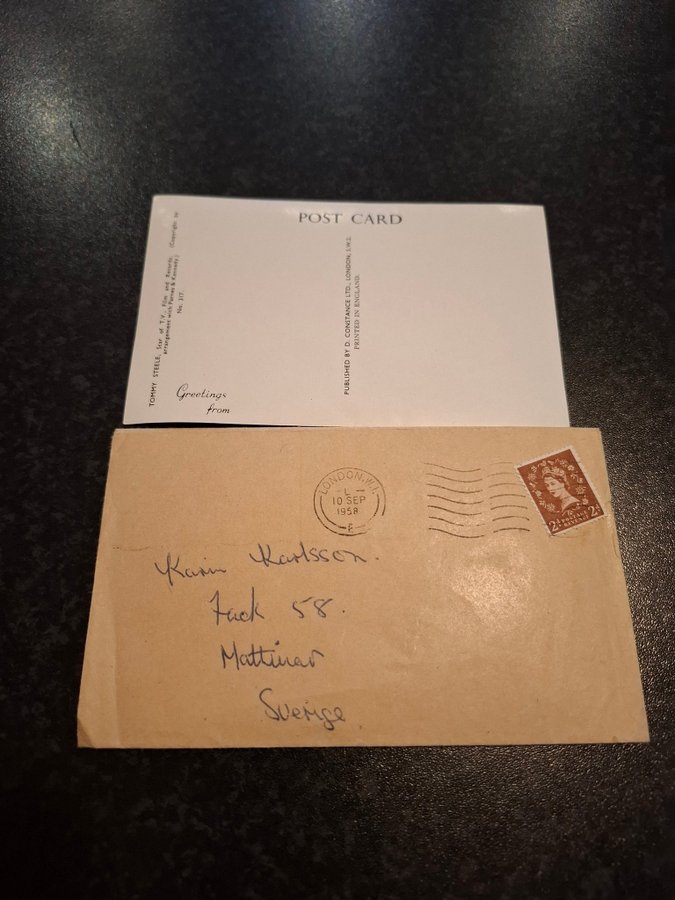 POST CARD
TOMMY STEELE, Star of T.V., Film and Records. (Copyright by
arrangement with Parnes & Kennedy.)
No. 317.
Greetings
from
PUBLISHED BY D. CONSTANCE LTD., LONDON, S.W.1.
PRINTED IN ENGLAND.
LONDON. W.1.
L
10 SEP
1958
2D POSTAGE 2D
REVENUE
Karin Karlsson.
Fack 58.
Mattmar
Sverige